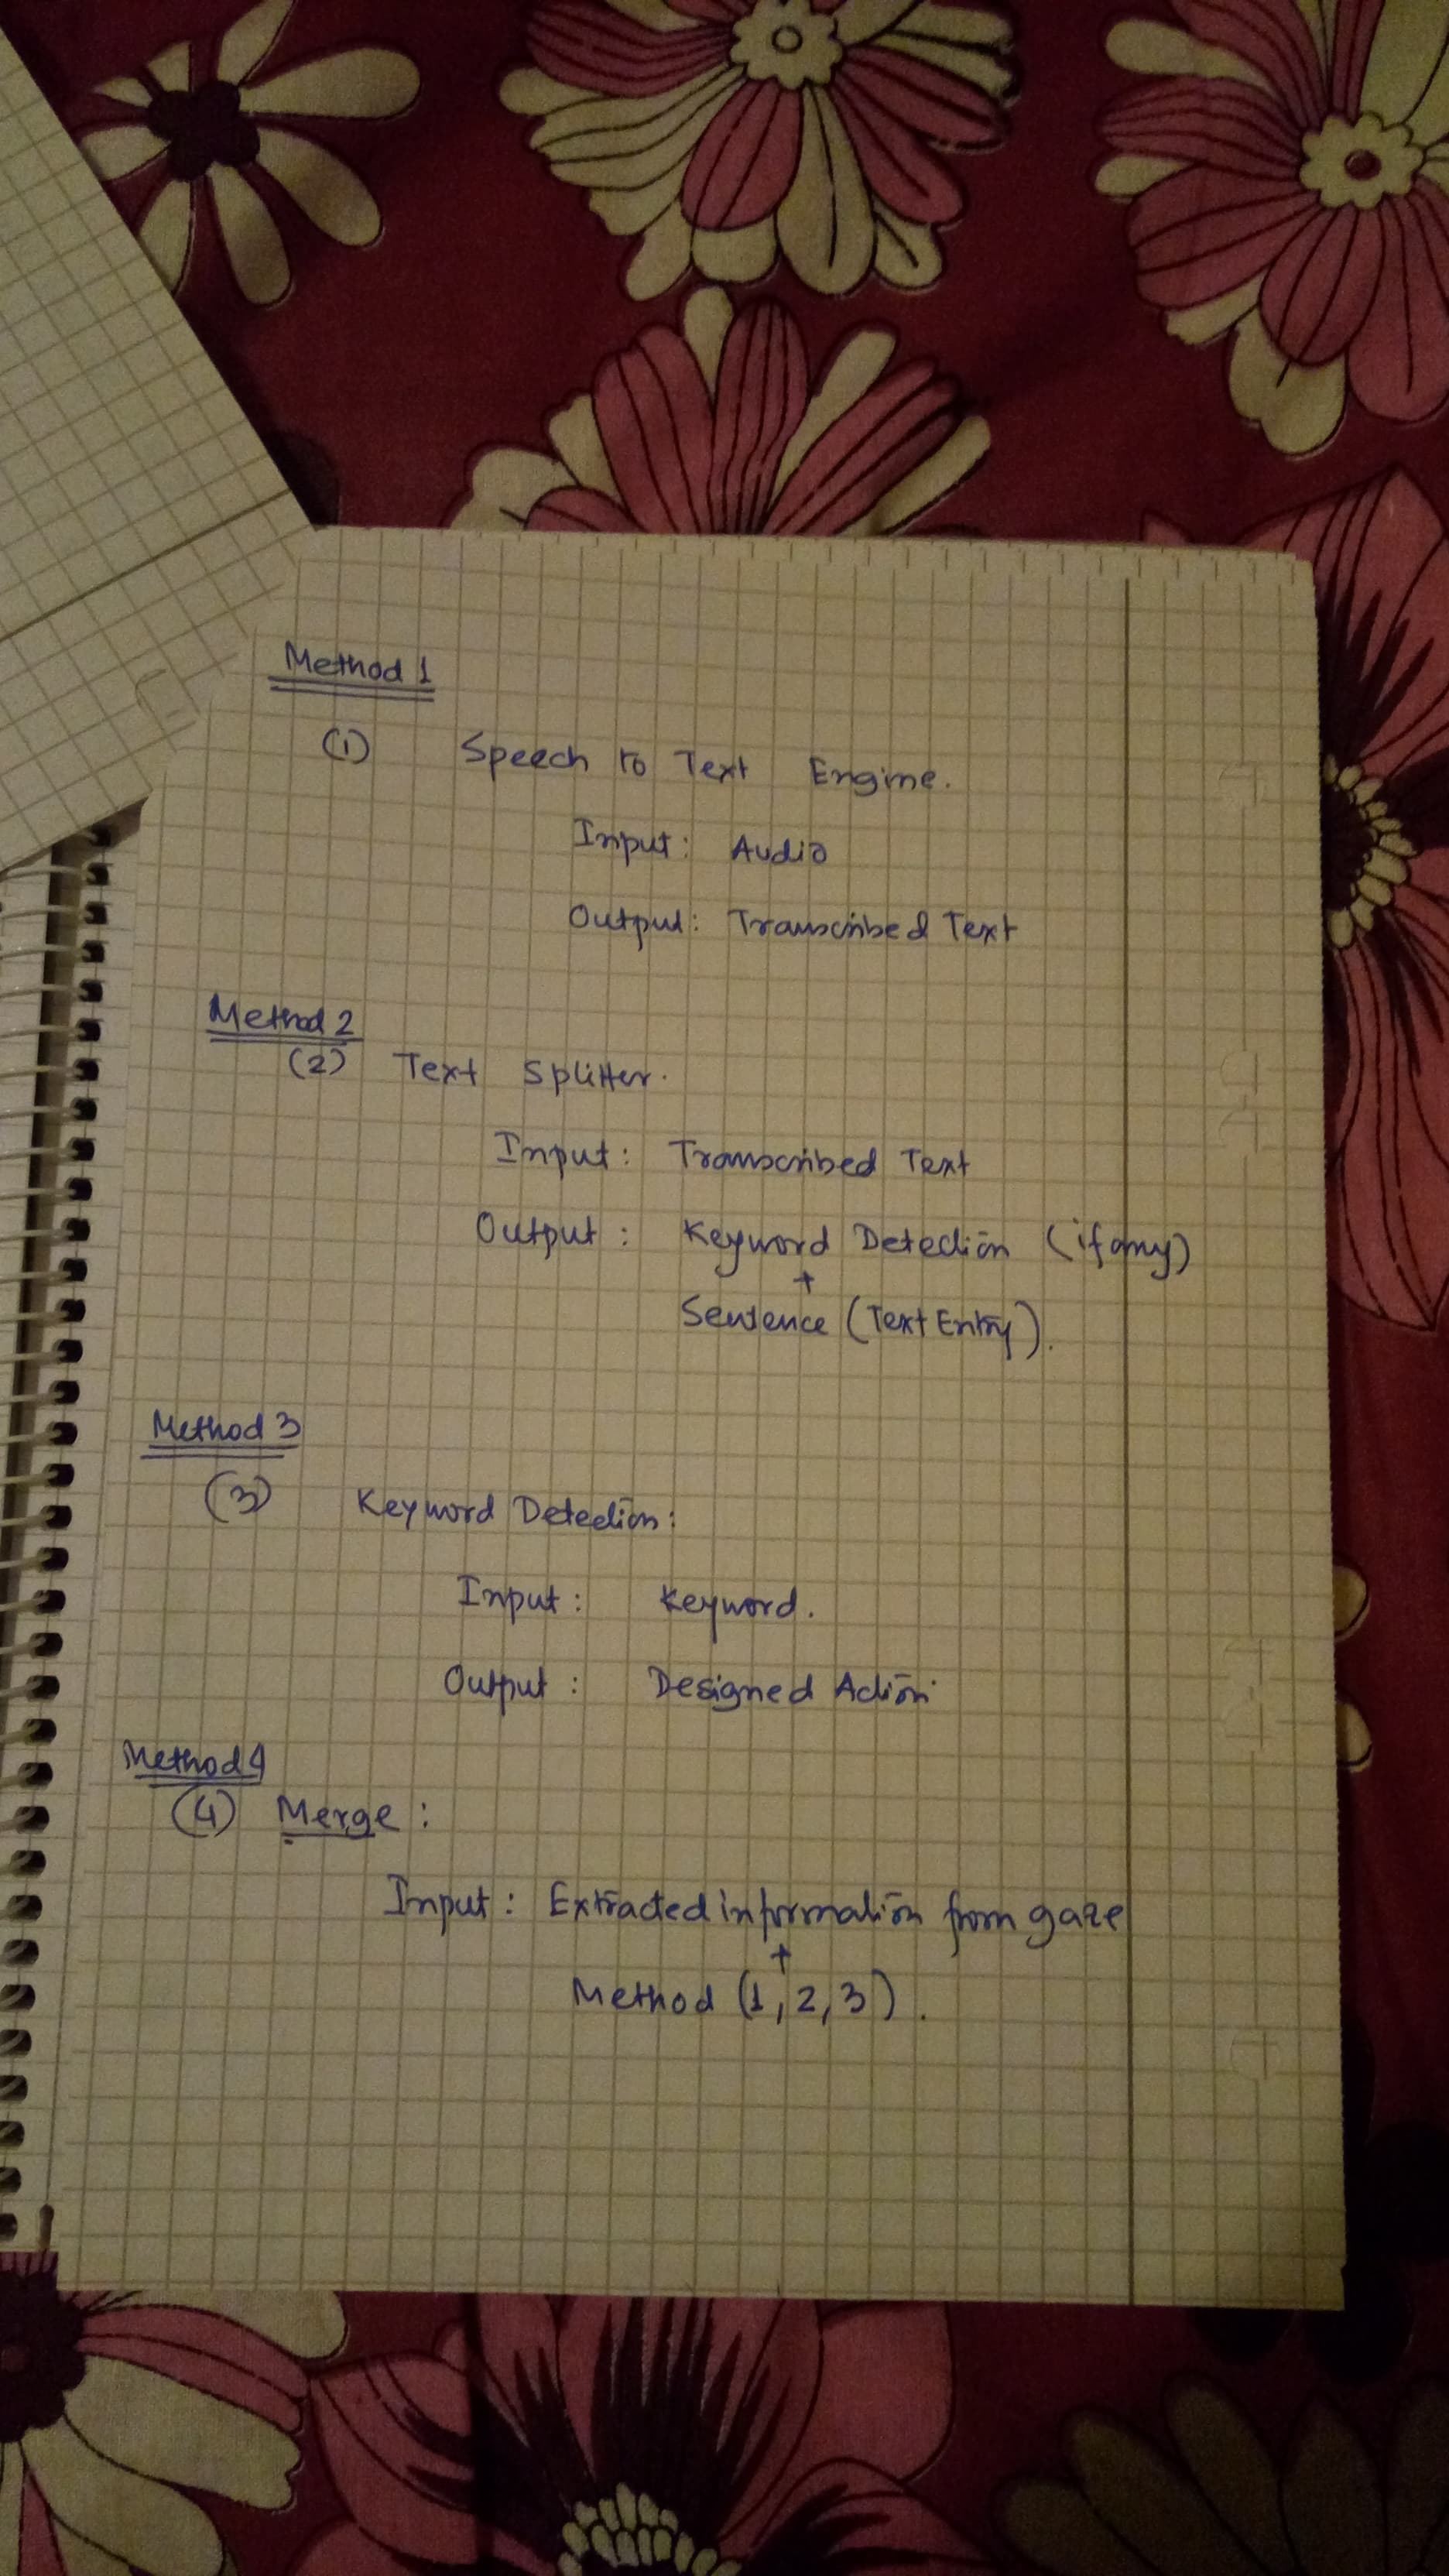 Method 1
(1) Speech to Text Engine.
Input: Audio
Output: Transcribed Text
Method 2
(2) Text Splitter.
Input: Transcribed Text
Output: Keyword Detection (if any)
+
Sentence (Text Entry).
Method 3
(3) Keyword Detection:
Input: Keyword.
Output: Designed Action.
Method 4
(4) Merge:
Input: Extracted information from gaze
+
Method (1, 2, 3).